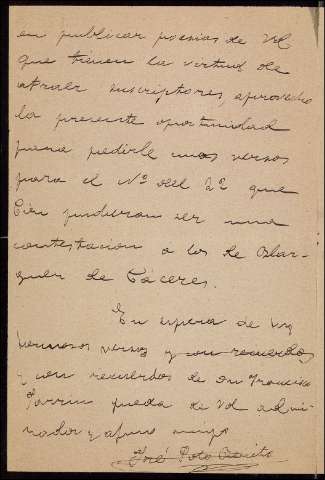 en publicar poesías de Vd
que tienen la virtud de
atraer suscriptores, aprovecho
la presente oportunidad
para pedirle unos versos
para el Nº del 2º que
bien pudieran ser una
contestación á los de Blaz-
quez de Cáceres.
En espera de sus
hermosos versos y con recuerdos
y con recuerdos de Dn Francisco
queda de Vd admi-
rador y afmo amigo
José Polo Benito